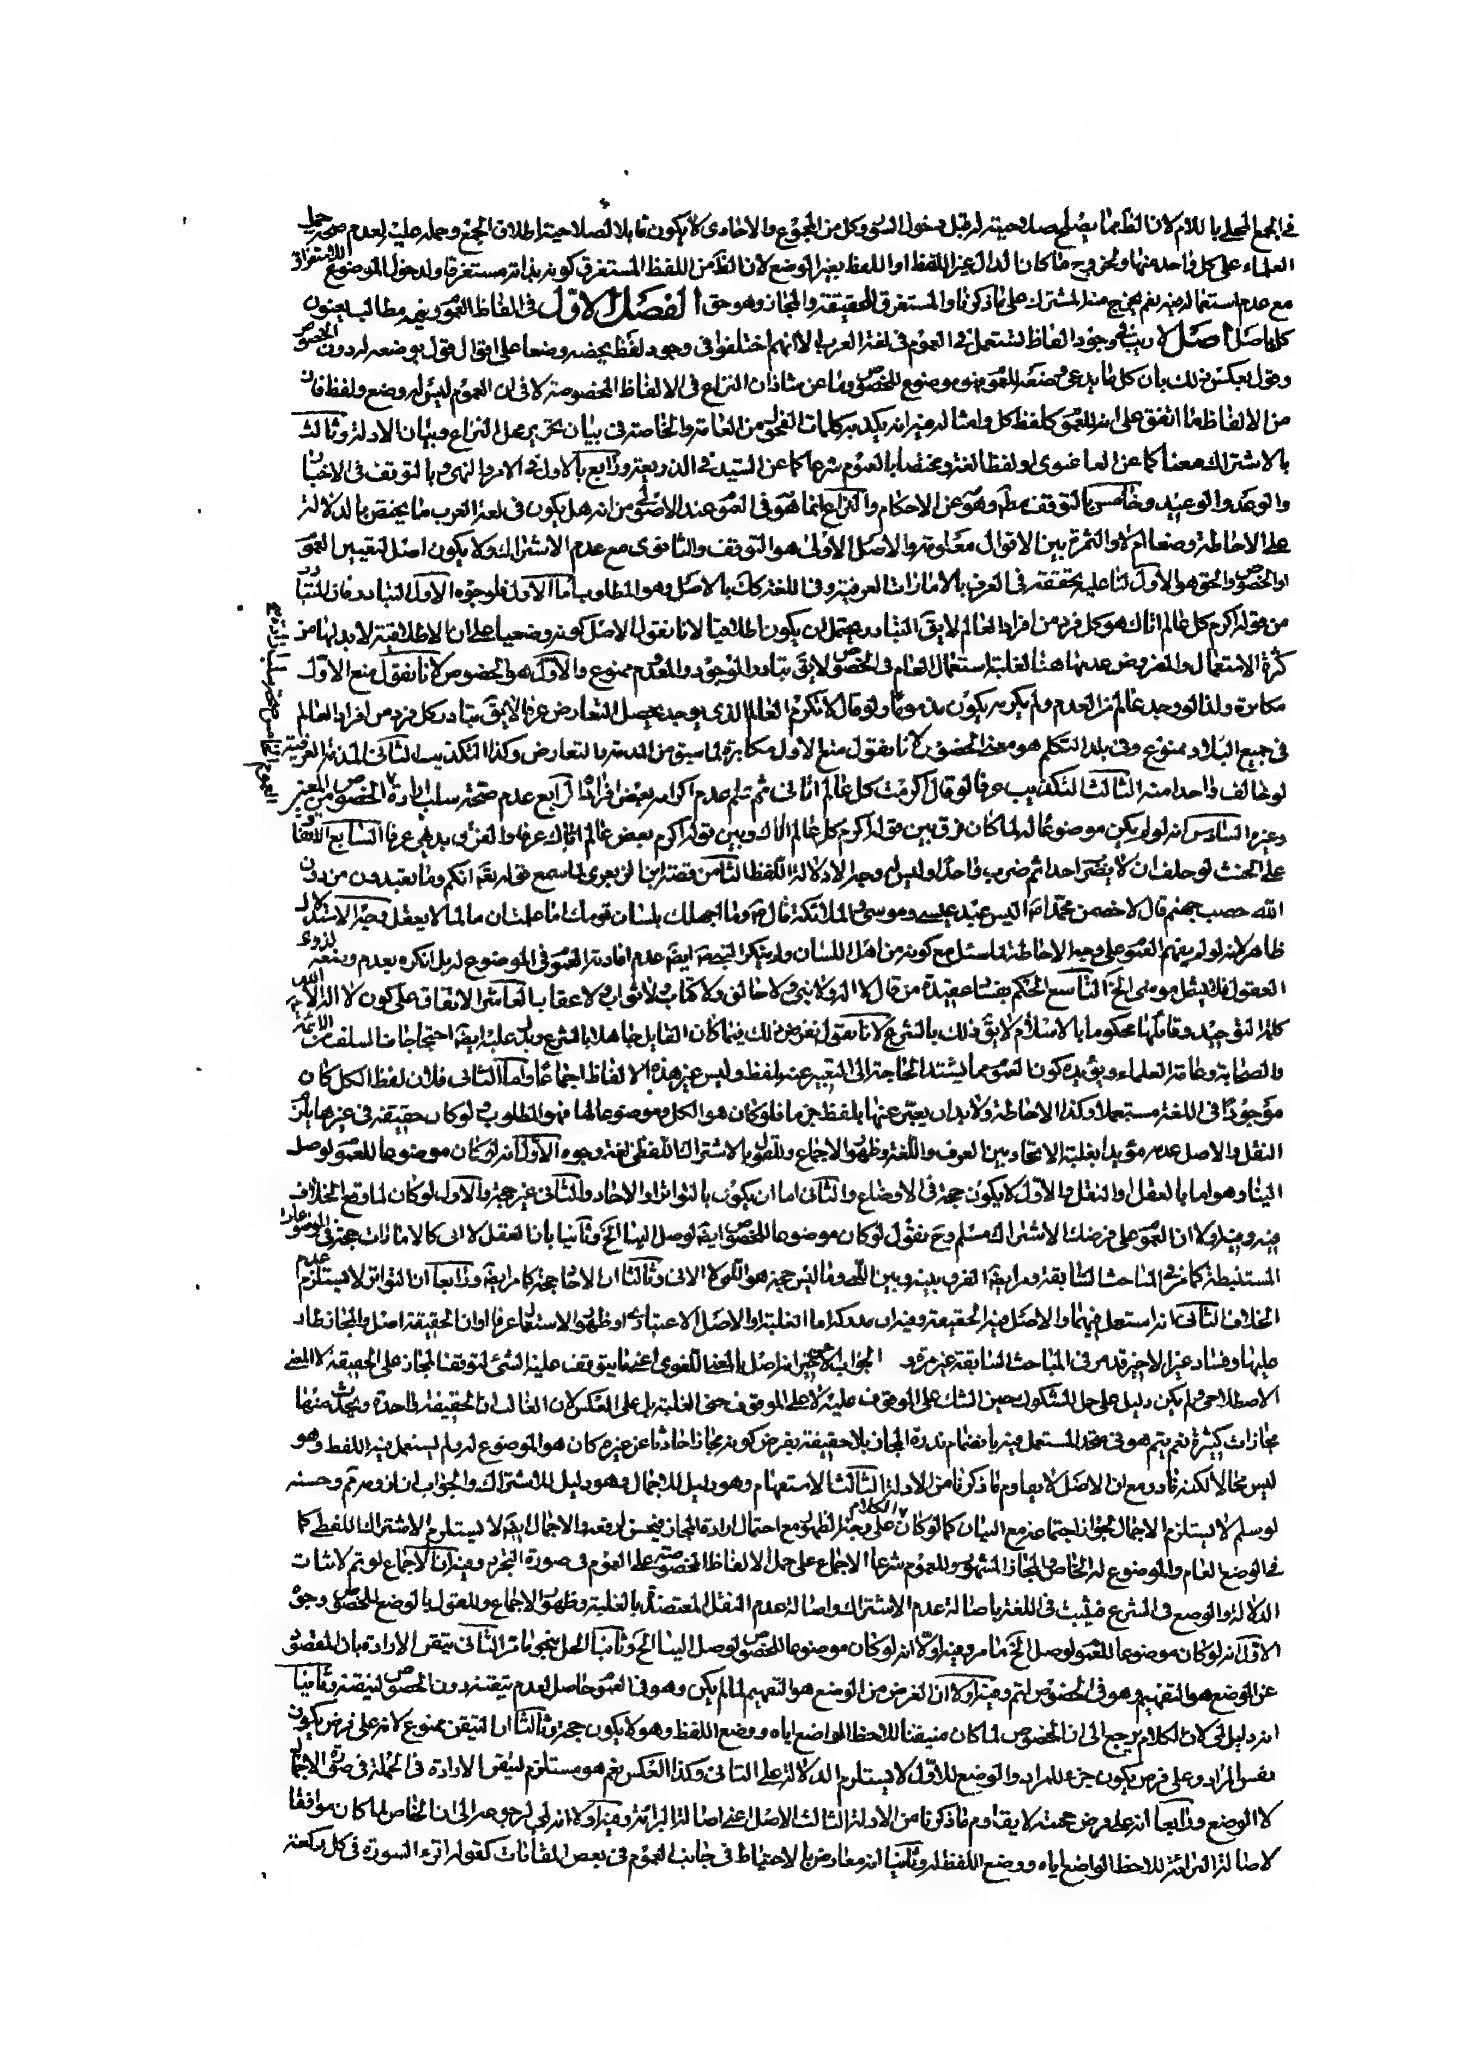 في الجمع المحلى باللام لان الظ مما يصلح صلاحيته له قبل دخول السور وكل من المجموع والاحاد لا يكون قابلا لصلاحية اطلاق الجمع وحمله عليه لعدم صحة حمل
العلماء على كل واحد منها ويخرج ما كان الدال غير اللفظ او اللفظ بغير الوضع لان الظ من اللفظ المستغرق كونه بذاته مستغرقا ولدخول الموضوع للاستغراق
مع عدم استعماله فيه نعم يخرج منه المشترك على ما ذكرنا والمستغرق الحقيقة والمجاز وهو حق الفصل الاول في الفاظ العموم وفيه مطالب يعنون
كل باصل اصل لا ريب في وجود الفاظ تستعمل في العموم في لغة العرب الا انهم اختلفوا في وجود لفظ يخصه وضعا على اقوال قول بوضعه له دون الخصوص
وقول بعكس ذلك بان كل ما يدعى وضعه للعموم فهو موضوع للخصوص وما عن شاذ ان النزاع في الالفاظ المخصوصة لا في ان العموم ليس له وضع ولفظ فان
من الالفاظ ما اتفق على انه للعموم كلفظ كل وامثاله فيه انه يكذبه كلمات الفحول من العامة والخاصة في بيان تحرير محل النزاع وبيان الادلة وثالث
بالاشتراك معنا كما عن العا غنوى او لفظا لغة ومختصا بالعموم شرعا كما عن السيد في الذريعة ورابع بالاول في الامر والنهي وبالتوقف في الاخبار
والوعد والوعيد وخامس بالتوقف مط وهو عن الاحكام والنزاع انما هو في العموم عند الاصولي من انه هل يكون في لغة العرب ما يختص بالدلالة
على الاحاطة وضعا ام لا والثمرة بين الاقوال معلومة والاصل الاولى هو التوقف والثانوى مع عدم الاشتراك ولا يكون اصل لتعيين العموم
او الخصوص والحق هو الاول لنا عليه تحققه في العرف بالامارات العرفية وفي اللغة كك بالاصل وهو المطلوب اما الاول فلوجوه الاول التبادر فان المتبادر
من قوله اكرم كل عالم اتاك هو كل فرد من افراد العالم لا يق التبادر يحتمل ان يكون اطلاقيا لانا نقول الاصل كونه وضعيا على ان الاطلاقية لا بد لها من
كثرة الاستعمال والمفروض عدمها هنا لغلبة استعمال العام في الخصوص لا يق تبادر الموجود والمعدوم ممنوع والاول هو الخصوص لانا نقول منع الاول
مكابرة ولذا لو وجد عالم من العدم ولم يكرمه يكون مذموما ولو قال لا تكرم العالم الذي يوجد يحصل التعارض عرفا لا يق تبادر كل فرد من افراد العالم
في جميع البلاد ممنوع وفي بلد التكلم هو معنى الخصوص لانا نقول منع الاول مكابرة لما سبق من المذمة والتعارض وكذا التكذيب الثاني المذمة العرفية
لو خالف واحدا منه الثالث التكذيب عرفا لو قال اكرمت كل عالم اتاني ثم علم عدم اكرامه بعض افراده الرابع عدم صحة سلب ارادة الخصوص من المعبر
العموم الخامس صحة سلب ارادته
وغيره السادس انه لو لم يكن موضوعا له لما كان فرق بين قوله اكرم كل عالم اتاك وبين قوله اكرم بعض عالم اتاك عرفا والفرق بديهي عرفا السابع اتفاقهم
على الحنث لو حلف ان لا يضرب احدا ثم ضرب واحدا وليس له وجه الا دلالة اللفظ الثامن قصة ابن الزبعرى لما سمع قوله تعالى انكم وما تعبدون من دون
الله حصب جهنم قال لاخصمن محمدا ثم قال اليس عبد عيسى وموسى والملائكة قال ص وما اجهلك بلسان قومك اما علمت ان ما لما لا يعقل وجه الاستدلال
ظاهر لانه لو لم يفهم العموم على وجه الاحاطة لما سئل مع كونه من اهل اللسان ولم ينكر النبي ص ايض عدم افادته العموم في الموضوع له بل انكره بعدم وضعه لذوى
العقول فلا يشمل موسى الخ التاسع الحكم بفساد عقيدة من قال لا اله ولا نبي ولا خالق ولا كتاب ولا ثواب ولا عقاب العاشر الاتفاق على كون لا اله الا الله
كلمة التوحيد وقائلها محكوما بالاسلام لا يق ذلك بالشرع لانا نقول نفرض ذلك فيما كان القايل جاهلا بالشرع ويدل عليه ايض احتجاجات السلف من الائمة
والصحابة وعامة العلماء ويؤيده كون العموم مما يشتد الحاجة الى التعبير عنه بلفظ وليس غير هذه الالفاظ اجماعا واما الثاني فلان لفظ الكل كان
موجودا في اللغة مستعملا وكذا الاحاطة ولا بد ان يعبر عنها بلفظ جزما فلو كان هو الكل وموضوعا لها فهو المطلوب ولو كان حقيقة في غيرها يلزم
النقل والاصل عدمه مؤيدا بغلبة الاتحاد بين العرف واللغة وظهور الاجماع وللقول بالاشتراك اللفظي لغة وجوه الاول انه لو كان موضوعا للعموم لوصل
الينا وهو اما بالعقل او النقل والاول لا يكون حجة في الاوضاع والثاني اما ان يكون بالتواتر او الاحاد والثاني غير حجة والاول لو كان لما وقع الخلاف
فيه وفيه اولا ان العموم على فرض الاشتراك مسلم وح نقول لو كان موضوعا للخصوص ايض لوصل الينا الخ وثانيا بان العقل لا الى كالامارات حجة في الموضوعات
المستنبطة كما مر في المباحث السابقة ومر ايض الفرق بينه وبين اللمى وما ليس حجة هو اللمى لا الانى وثالثا ان الاحاد حجة كما مر ايض ورابعا ان التواتر لا يستلزم عدم
الخلاف الثاني انه استعمل فيهما والاصل فيه الحقيقة وفيه ان مدركه اما الغلبة او الاصل الاعتباري او ظهور الاستعمال عرفا او ان الحقيقة اصل والمجاز طار
عليها وفساد غير الاخير قد مر في المباحث السابقة غير مرة و الجواب عن الاخير انه اصل بالمعنى اللغوي اعنى ما يتوقف عليه الشئ لتوقف المجاز على الحقيقة لا المعنى
الاصطلاحي ولم يكن دليل على حمل المشكوك حين الشك على الموقوف عليه لا على الموقوف حتى الغلبة بل على العكس لان الغالب ان الحقيقة واحدة ويحدث منها
مجازات كثيرة نعم يتم هو في متحد المستعمل فيه بانضمام ندرة المجاز بلا حقيقة بفرض كونه مجازا حادثا عن غيره كان هو الموضوع له ولم يستعمل فيه اللفظ وهو
ليس محالا لكنه نادر مع ان الاصل لا يقاوم ما ذكرنا من الادلة الثالث الاستفهام وهو دليل للاجمال وهو دليل للاشتراك والجواب ان لزومه مم وحسنه
لو سلم لا يستلزم الاجمال لجواز اجتماعه مع البيان كما لو كان الكلام على وجه الظهور مع احتمال ارادة المجاز فيحسن لدفعه والاجمال ايض لا يستلزم الاشتراك اللفظي كما
في الوضع العام والموضوع له الخاص والمجاز المشهور وللعموم شرعا الاجماع على حمل الالفاظ المخصوصة على العموم في صورة التجرد وفيه ان الاجماع لو تم لاثبات
الدلالة والوضع في الشرع فيثبت في اللغة باصالة عدم الاشتراك واصالة عدم النقل المعتضدة بالغلبة وظهور الاجماع وللقول بالوضع للخصوص وجوه
الاول انه لو كان موضوعا للعموم لوصل الخ ما مر وفيه اولا انه لو كان موضوعا للخصوص لوصل الينا الخ وثانيا الحل بنحو ما مر الثاني تيقن الارادة بان المقصود
عن الوضع هو التفهيم وهو في الخصوص اتم وفيه اولا ان الغرض من الوضع هو التفهيم لما لم يكن وهو في العموم حاصل لعدم تيقنه دون الخصوص لتيقنه وثانيا
انه دليل لمي لان الكلام يرجع الى ان الخصوص لما كان متيقنا للاحظ الواضع اياه ووضع اللفظ وهو لا يكون حجة وثالثا ان التيقن ممنوع لانه على فرض يكون
نفس المراد وعلى فرض يكون جزء للمراد والوضع للاول لا يستلزم الدلالة على الثاني وكذا العكس نعم هو مستلزم لتيقن الارادة في الجملة في صورة الاجمال
لا الوضع ورابعا انه على فرض حجيته لا يقاوم ما ذكرنا من الادلة الثالث الاصل اعنى اصالة البرائة وفيه اولا انه لمي لرجوعه الى ان الخاص لما كان موافقا
لاصالة البرائة للاحظ الواضع اياه ووضع اللفظ له وثانيا انه معارض بالاحتياط في جانب العموم في بعض المقامات كقوله اقرء السورة في كل ركعة